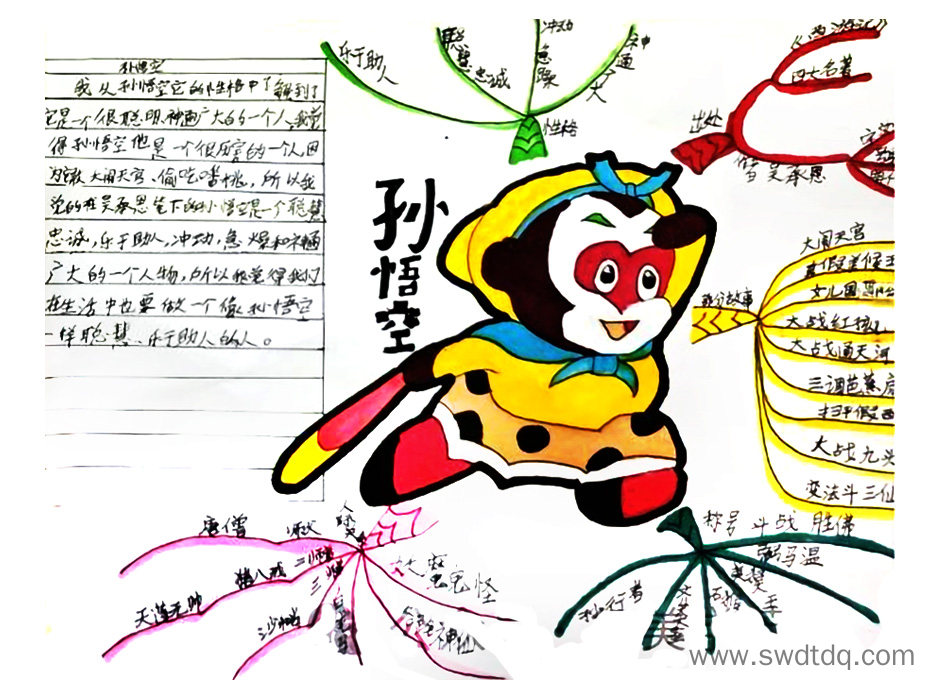 孙悟空
我从孙悟空的性格中了解到了
它是一个很聪明,神通广大的的一个人,我觉
得孙悟空他是一个很厉害的一个人因
为它敢大闹天宫、偷吃蟠桃,所以我
觉的在吴承恩笔下的孙悟空是一个聪慧
忠诚,乐于助人,冲动,急燥和神通
广大的一个人物,所以我觉得我们
在生活中也要做一个像孙悟空
一样聪慧、乐于助人的人。
孙悟空
性格
乐于助人
聪慧忠诚
冲动急躁
神通广大
出处
《西游记》
四大名著
作者吴承恩
部分故事
大闹天宫
真假美猴王
女儿国
大战红孩儿
大战通天河
三调芭蕉扇
扫平假西
大战九头
变法斗三仙
称号
斗战胜佛
弼马温
美猴王
孙行者
人物关系
师父
唐僧
二师弟
猪八戒
天蓬元帅
三师弟
沙悟净
白龙马
妖魔鬼怪
www.swdtdq.com